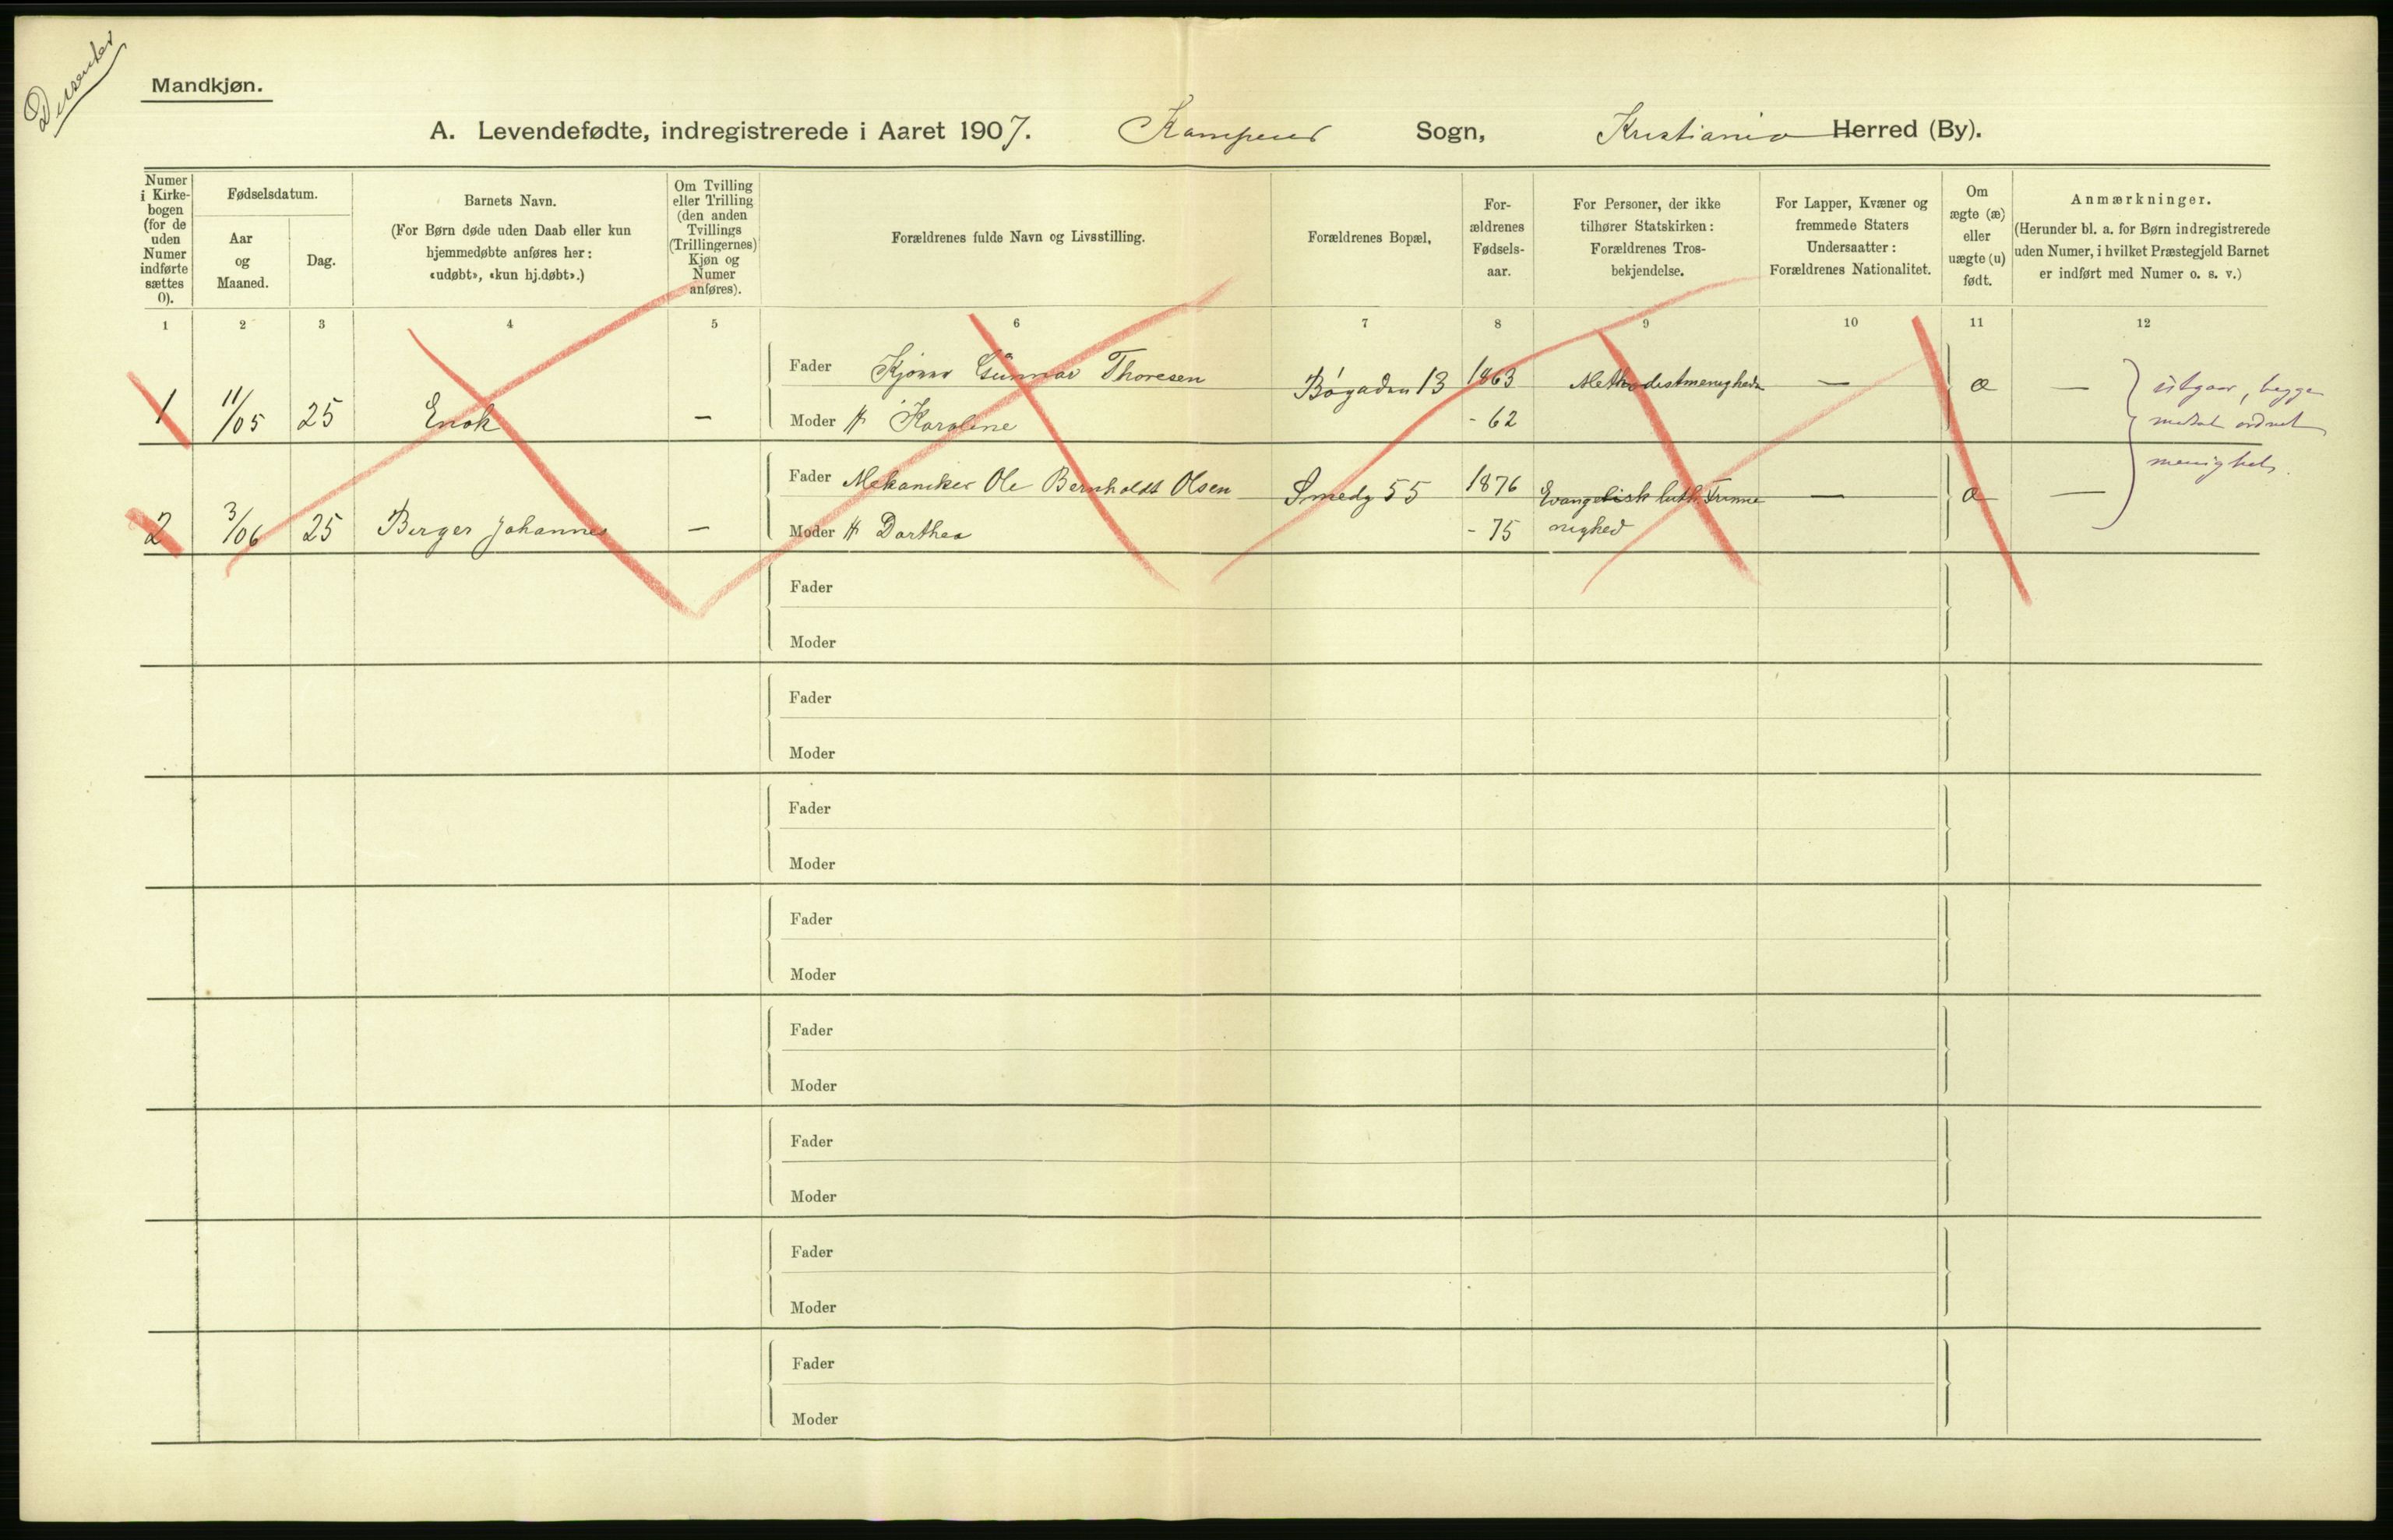 Dissenter
Mandkjøn.
A. Levendefødte, indregistrerede i Aaret 1907. Kampens Sogn, Kristiania Herred (By).
Numer i Kirke-bogen (for de uden Numer indførte sættes 0).
Fødselsdatum.
Aar og Maaned.
Dag.
Barnets Navn.
(For Børn døde uden Daab eller kun hjemmedøbte anføres her: «udøbt», «kun hj.døbt».)
Om Tvilling eller Trilling (den anden Tvillings (Trillingernes) Kjøn og Numer anføres).
Forældrenes fulde Navn og Livsstilling.
Forældrenes Bopæl,
For-ældrenes Fødsels-aar.
For Personer, der ikke tilhører Statskirken: Forældrenes Tros-bekjendelse.
For Lapper, Kvæner og fremmede Staters Undersaatter: Forældrenes Nationalitet.
Om ægte (æ) eller uægte (u) født.
Anmærkninger.
(Herunder bl. a. for Børn indregistrerede uden Numer, i hvilket Præstegjeld Barnet er indført med Numer o. s. v.)
1 2 3 4 5 6 7 8 9 10 11 12
Fader Gunnar Thoresen Bøgaden 13 1863 Methodistmenigheden — æ —
1 11/05 25 Enok — Moder H Karoline - 62
utgaar, begge
ordnet
menighet.
Fader Mekaniker Ole Bernholdt Olsen Smedg 55 1876 Evangelisk luth. Frime — æ —
2 3/06 25 Birger Johannes — Moder H Dorthea - 75 nighed
Fader
Moder
Fader
Moder
Fader
Moder
Fader
Moder
Fader
Moder
Fader
Moder
Fader
Moder
Fader
Moder